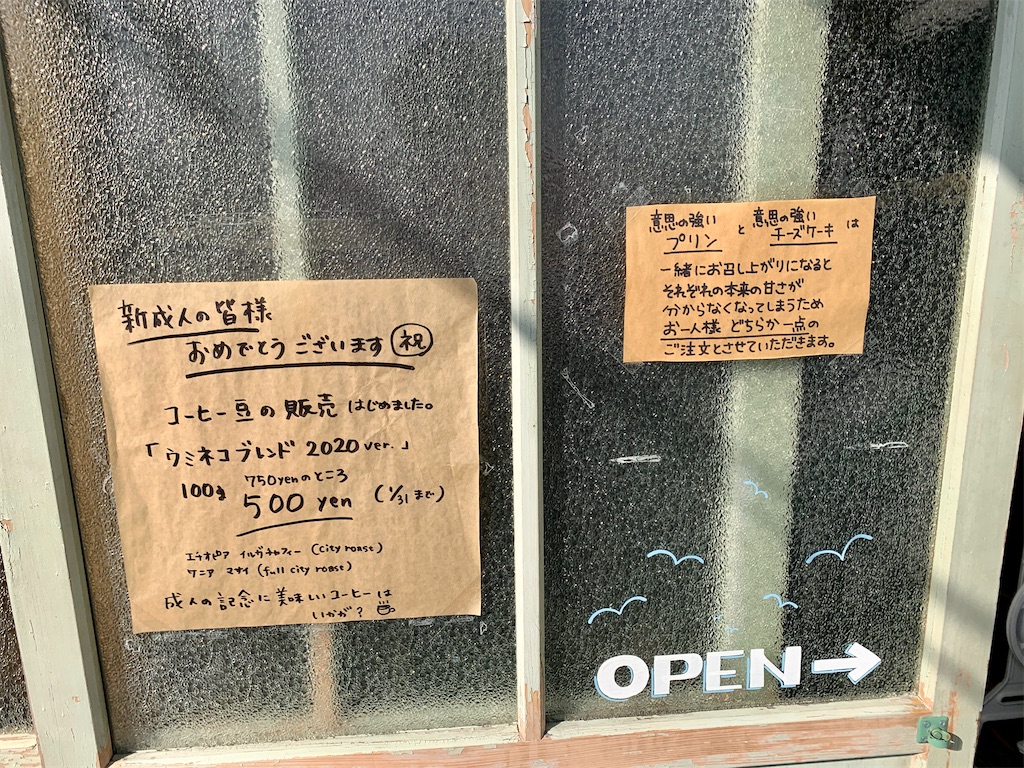 新成人の皆様
おめでとうございます 祝
コーヒー豆の販売 はじめました。
「ウミネコブレンド 2020 ver.」
750yenのところ
100g 500 yen (1/31 まで)
エチオピア イルガチャフィー (City roast)
ケニア マサイ (full city roast)
成人の記念に美味しいコーヒーは
いかが?
意思の強い と 意思の強い は
プリン チーズケーキ
一緒にお召し上がりになると
それぞれの本来の甘さが
分からなくなってしまうため
お一人様 どちらか一点の
ご注文とさせていただきます。
OPEN →